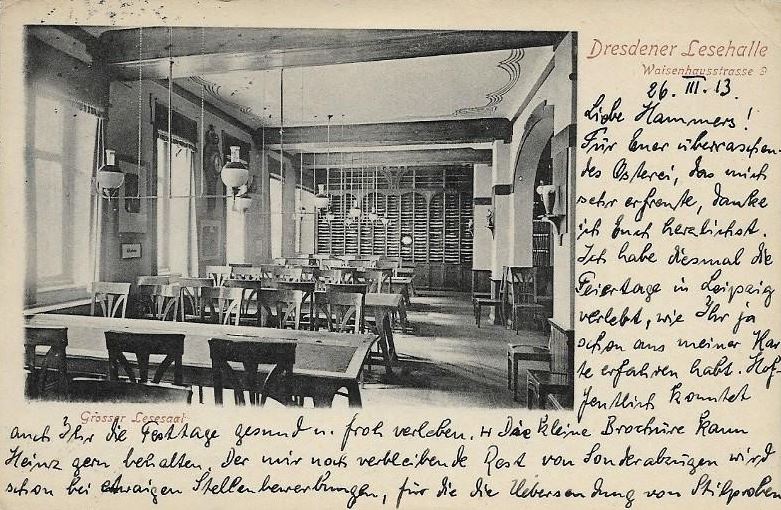 Dresdener Lesehalle
Waisenhausstrasse 9
26. III. 13.
Liebe Hammers!
Für Euer überraschen-
des Osterei, das mich
sehr erfreute, danke
ich Euch herzlichst.
Ich habe diesmal die
Feiertage in Leipzig
verlebt, wie Ihr ja
schon aus meiner Kar
te erfahren habt. Hof-
fentlich konntet
Grosser Lesesaal
auch Ihr die Festtage gesund u. froh verleben. Die kleine Brochüre kann
Heinz gern behalten. Der mir noch verbleibende Rest von Sonderabzügen wird
schon bei etwaigen Stellenbewerbungen, für die die Uebersendung von Stilproben